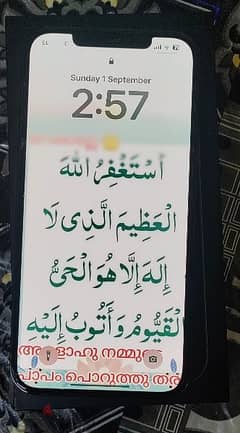 Sunday 1 September
2:57
أَسْتَغْفِرُ اللهَ
الْعَظِيمَ الَّذِي لَا
إِلَهَ إِلَّا هُوَ الْحَيُّ
الْقَيُّومُ وَأَتُوبُ إِلَيْهِ
പാപം പൊറുത്തു തര